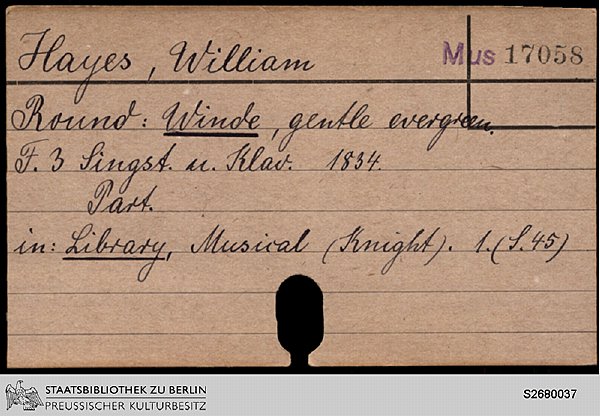 Hayes, William
Mus 17058
Round: Winde, gentle evergreen.
F. 3 Singst. u. Klav. 1834.
Part.
in: Library, Musical (Knight). 1. (S. 45)
STAATSBIBLIOTHEK ZU BERLIN
PREUSSISCHER KULTURBESITZ
S2680037